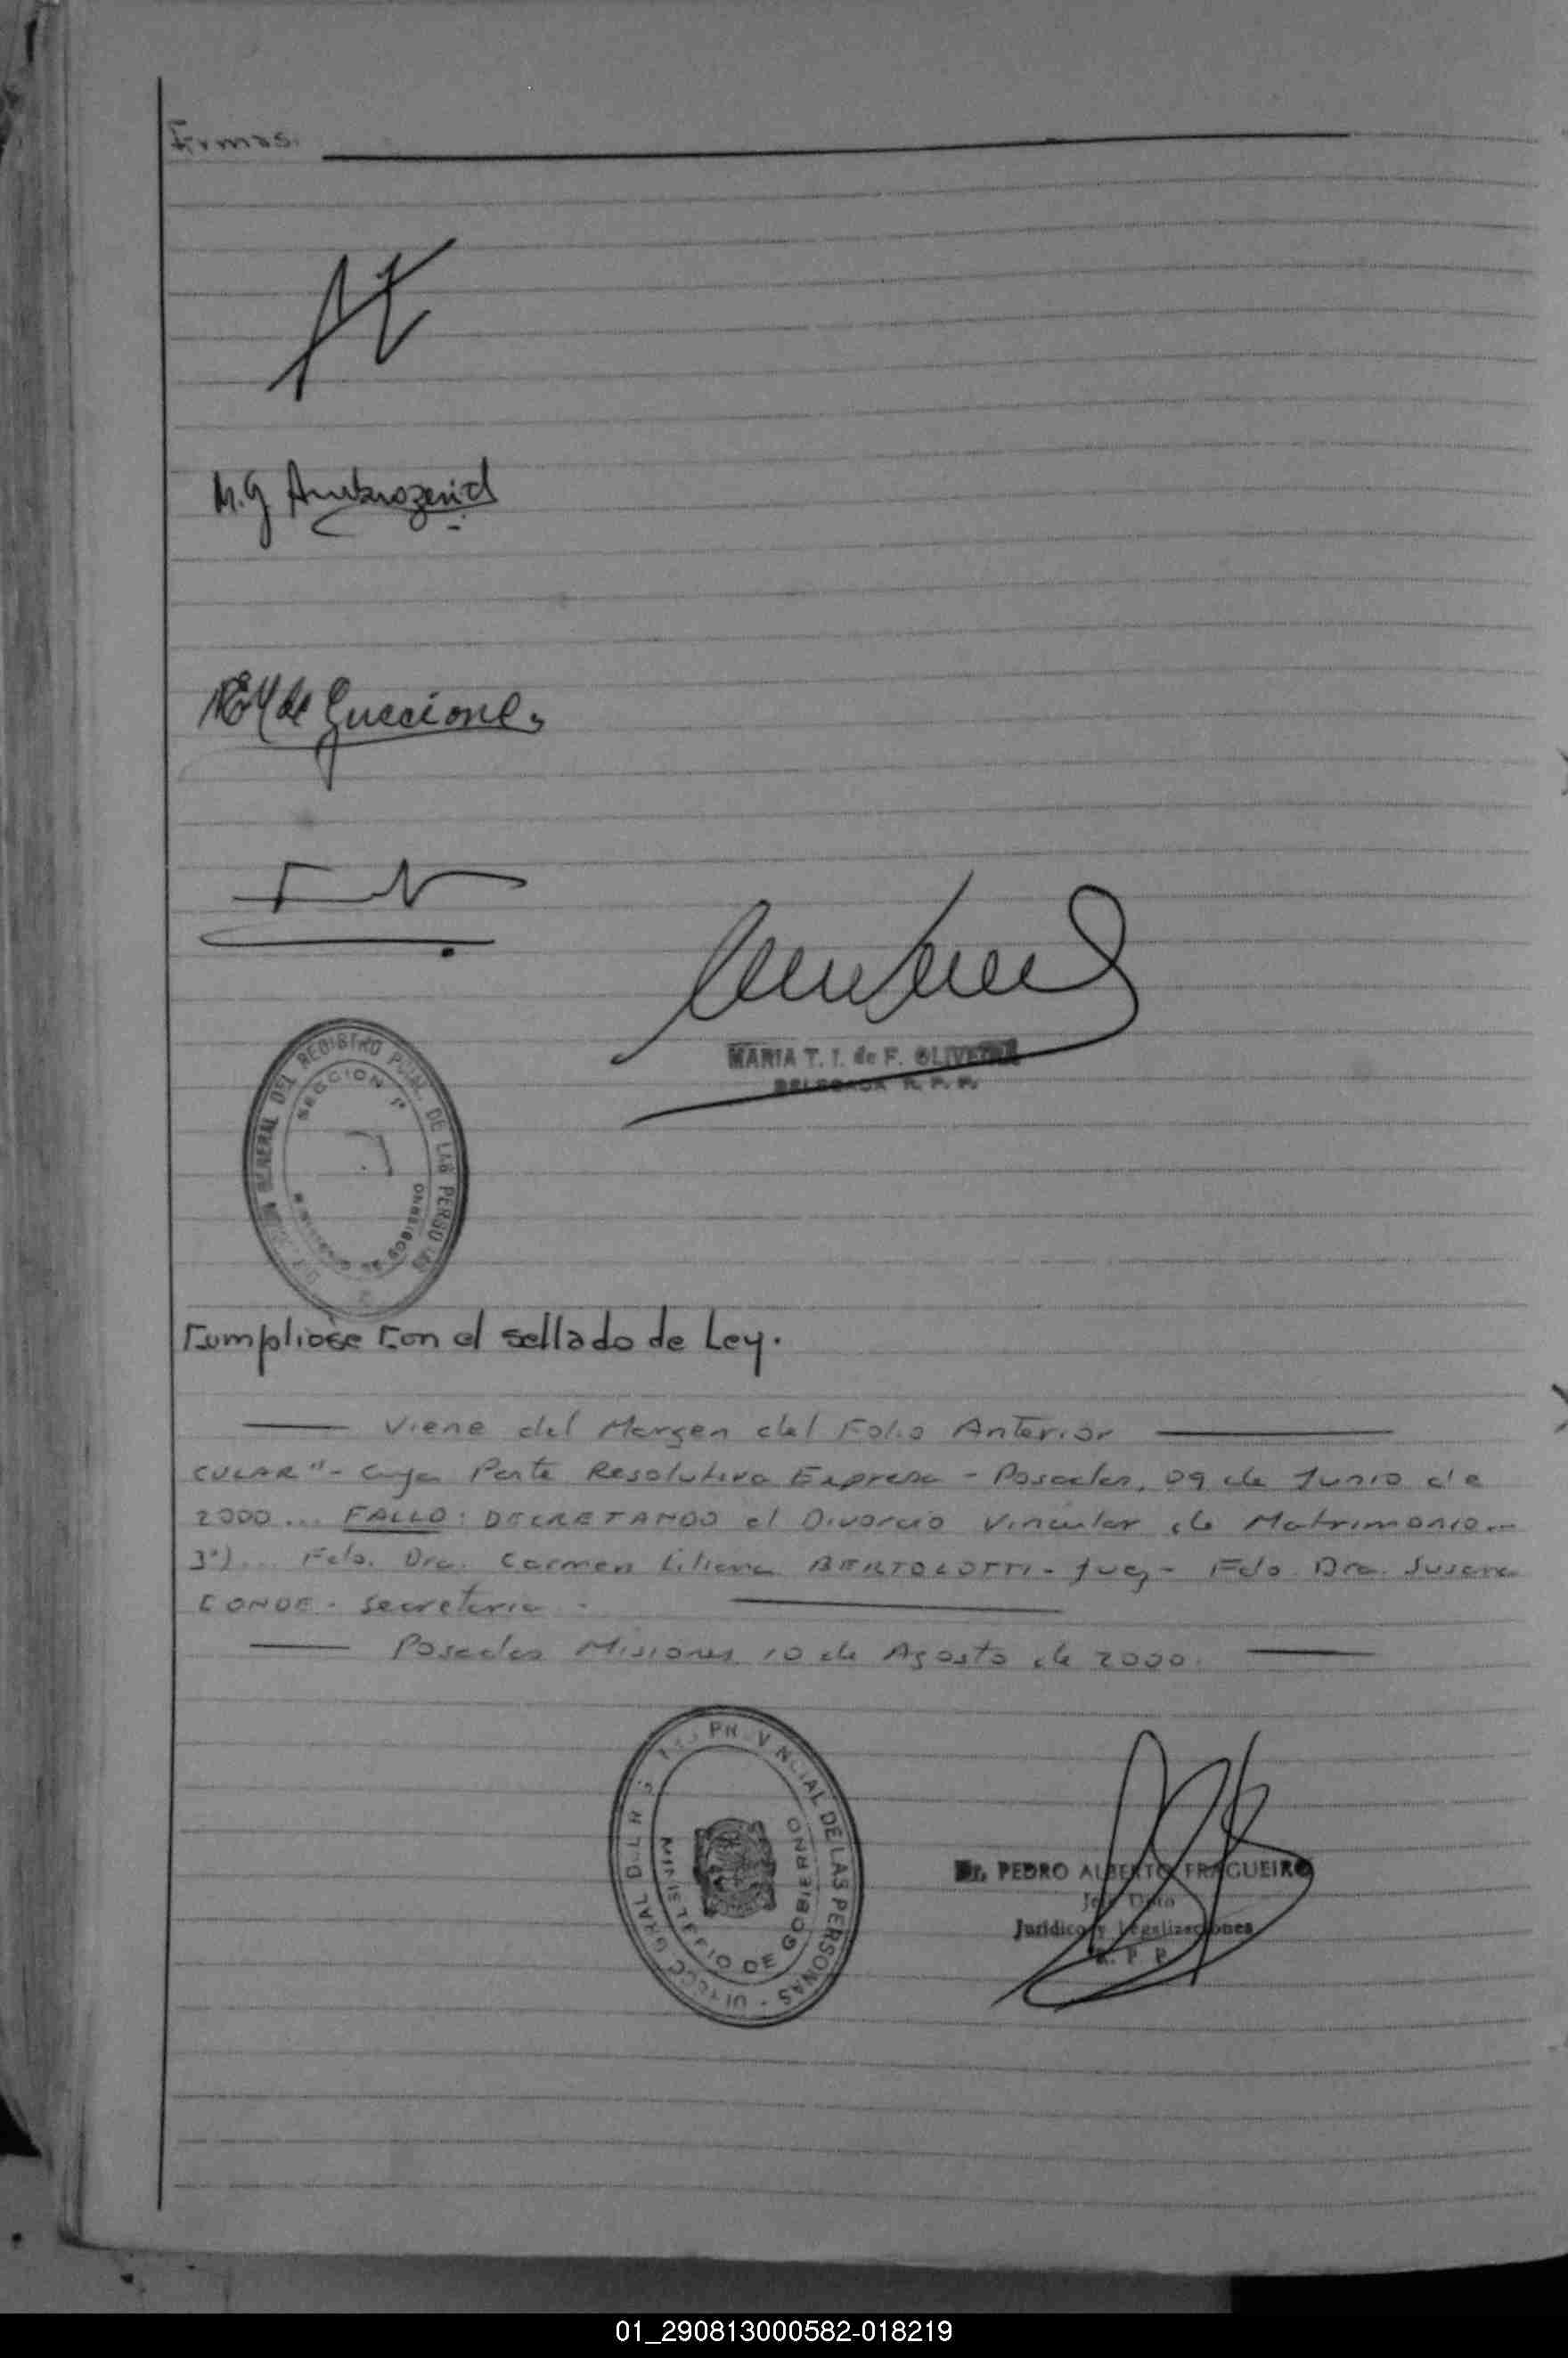 Firmas.
M.G Ambrozenid
de Guccione.
MARIA T. I. de F. OLIVEIRA
DELEGADA R. P. P.
GENERAL DEL REGISTRO PCIAL. DE LAS PERSONAS
SECCION 1ª
DE GOBIERNO
Cumpliose con el sellado de Ley.
Viene del Margen del Folio Anterior
CULAR"- Cuya Parte Resolutiva Expresa - Posadas, 09 de Junio de
2000... FALLO: DECRETANDO el Divorcio Vincular de Matrimonio...
3º)... Fdo. Dra. Carmen Liliana BERTOLOTTI - Juez - Fdo Dra. Susana
CONDE - Secretaria -
Posadas Misiones 10 de Agosto de 2000.
PROVINCIAL DE LAS PERSONAS
MINISTERIO DE GOBIERNO
Dr. PEDRO ALBERTO FRAGUEIRO
Jefe Dpto
Jurídico y Legalizaciones
R. P. P.
01_290813000582-018219